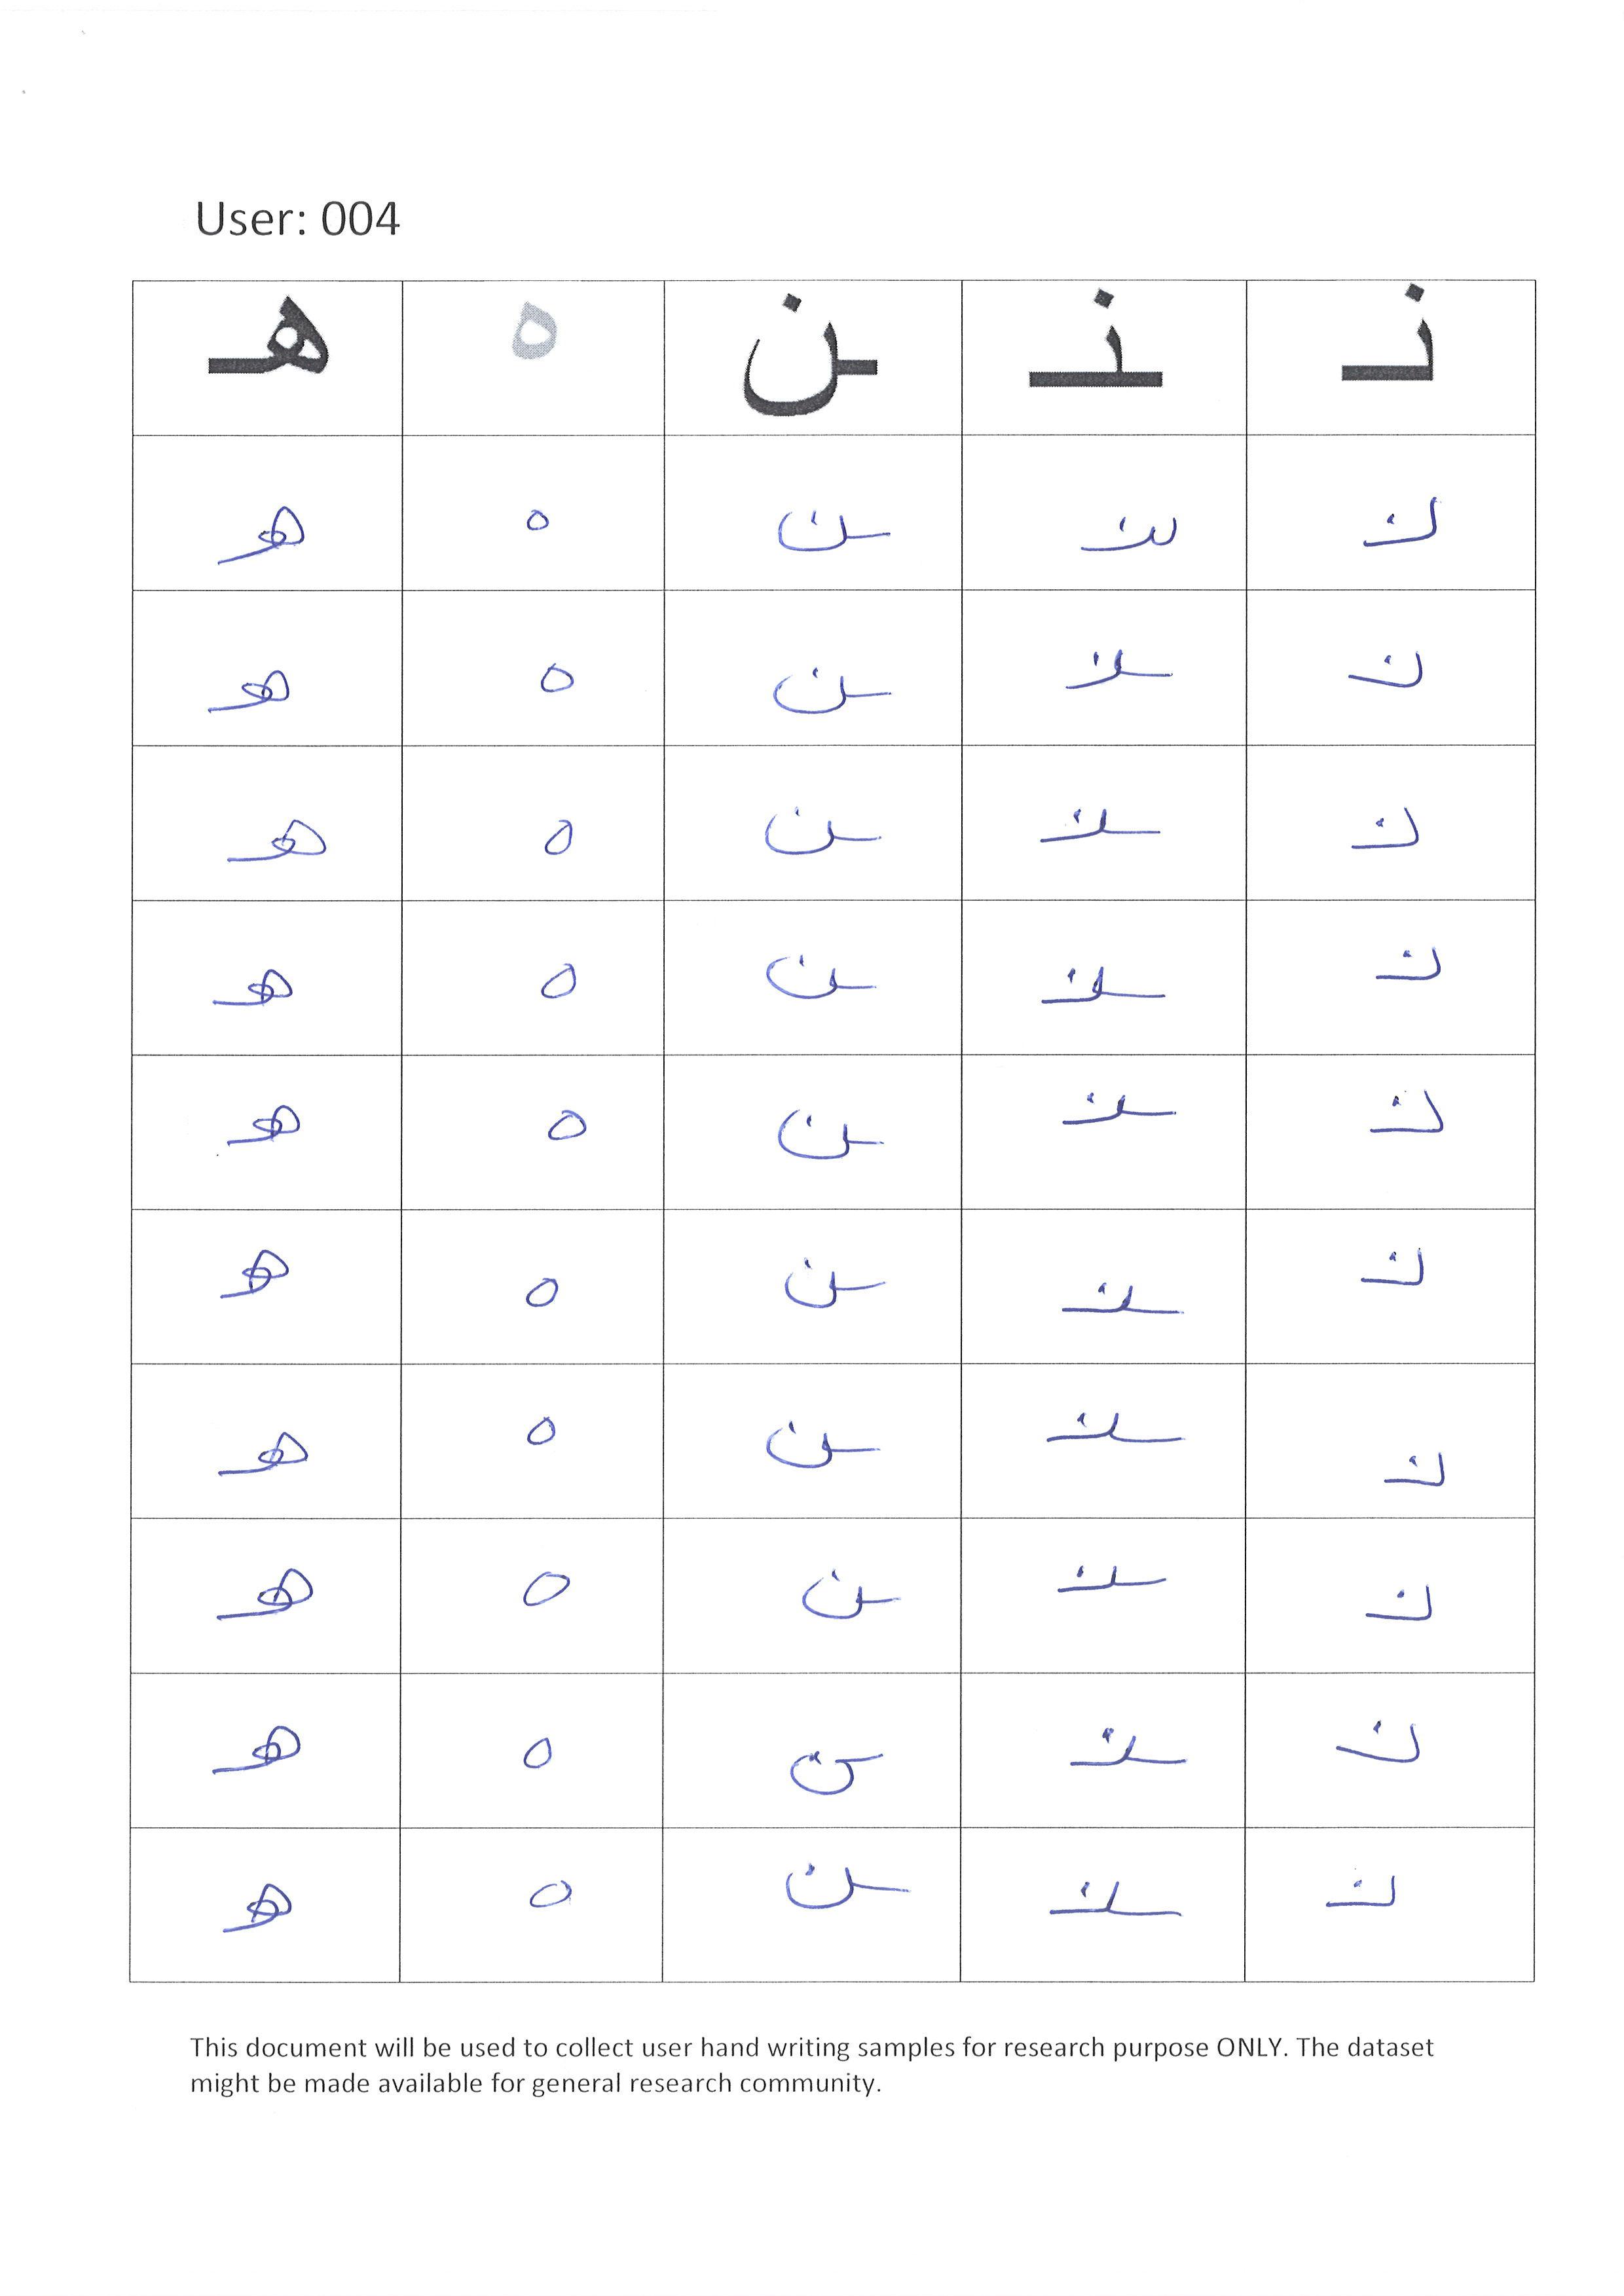 User: 004
نـ ـنـ ـن ه هـ
نـ ـنـ ـن ه هـ
نـ ـنـ ـن ه هـ
نـ ـنـ ـن ه هـ
نـ ـنـ ـن ه هـ
نـ ـنـ ـن ه هـ
نـ ـنـ ـن ه هـ
نـ ـنـ ـن ه هـ
نـ ـنـ ـن ه هـ
نـ ـنـ ـن ه هـ
نـ ـنـ ـن ه هـ
This document will be used to collect user hand writing samples for research purpose ONLY. The dataset
might be made available for general research community.